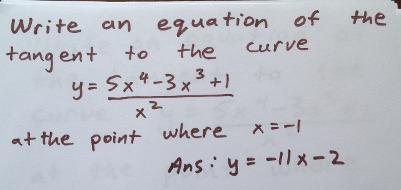 Write an equation of the
tangent to the curve
y = 5x⁴-3x³+1
x²
at the point where x=-1
Ans: y = -11x-2